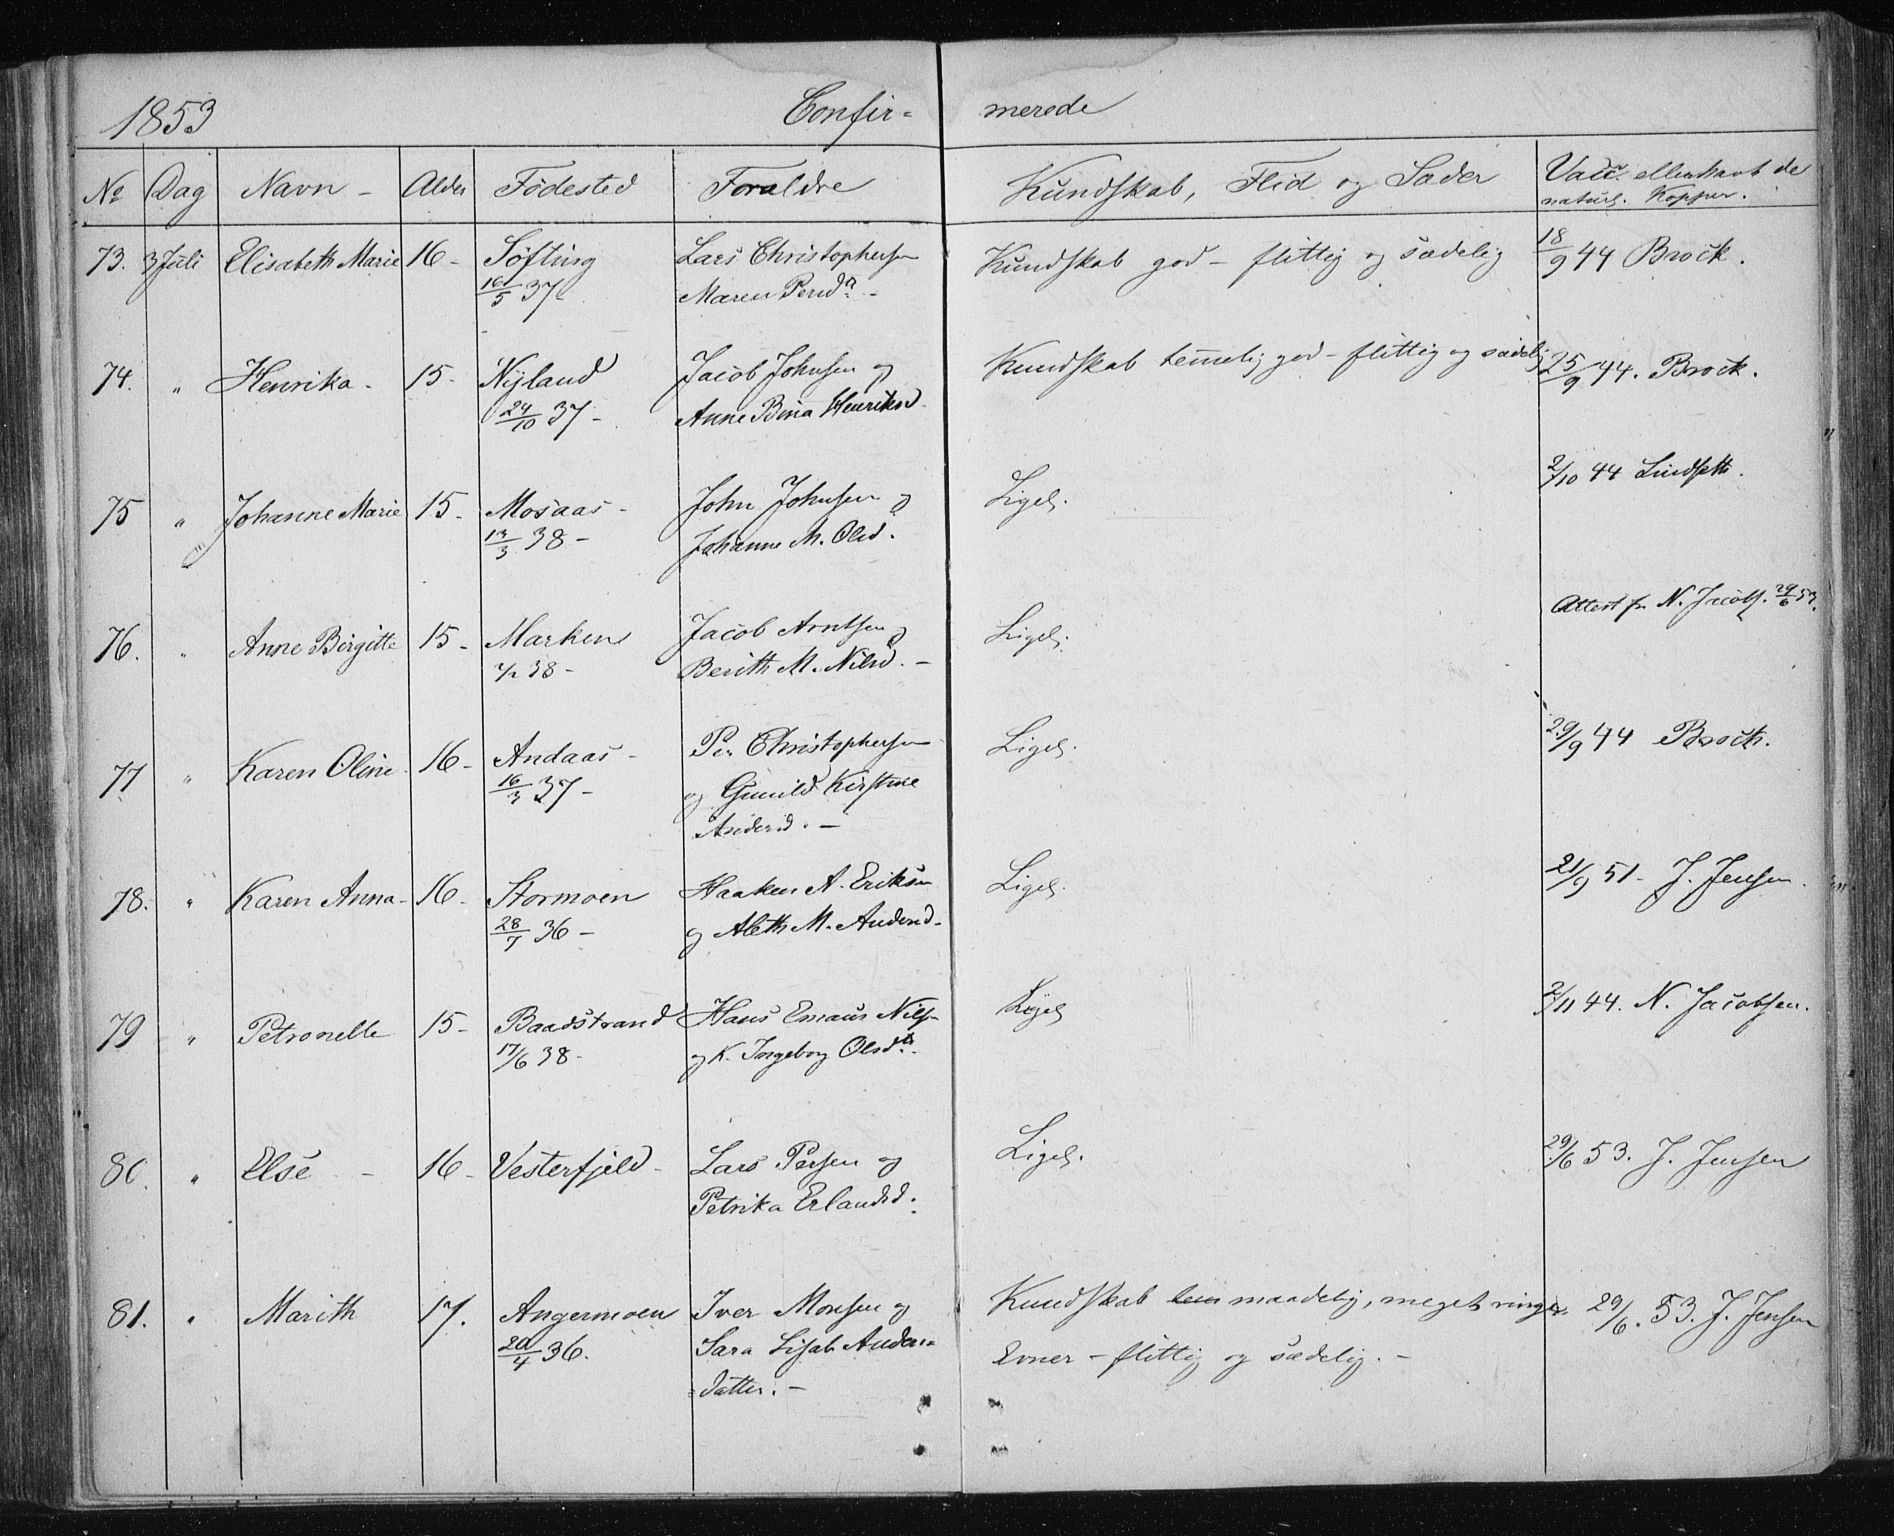 1853 Confir= merede
No Dag Navn - Alder Födested Forældre Kundskab, Flid og Sæder Vacc. eller havt de
naturl. Kopper.
73. 3 Juli Elisabeth Marie 16 - Söfting Lars Christophersen Kundskab god - flittig og sædelig 18/9 44 Brock.
16/5 37 Maren Persd. -
74. " Henrika - 15 - Nyland Jacob Johnsen og Kundskab temmelig god - flittig og sædelig 25/9 44. Brock.
24/10 37 - Anne Bina Henriksd
75 " Johanne Marie 15 - Mosaas - John Johnsen og Ligel. 2/10 44 Lindseth.
13/3 38 - Johanne M. Olsd.
76. " Anne Birgitte 15 - Marken Jacob Arntsen og Ligel. Attest fr N. Jacobs. 29/6 53.
38 - Berith M. Nilsd. -
77 " Karen Oline - 16 - Andaas - Per Christophersen Ligel. 29/9 44 Brock.
16/3 37 - og Gunild Kirstine
Andersd. -
78. " Karen Anna - 16 - Stormoen Haaken A. Eriksen Ligel. 21/9 51 - J. Jensen.
28/7 36 - og Aleth M. Andersd -
79 " Petronelle 15 - Baadstrand Hans Emaus Nils- Ligel 2/11 44. N. Jacobsen.
17/6 38 - og K. Ingeborg Olsd.
80. " Else - 16 - Vesterfjeld - Lars Persen og Ligel. 29/6 53. J. Jensen
Petrika Erlandsd.
81. " Marith 17. Angermoen Iver Monsen og Kundskab tem maadelig, meget ringe 29/6. 53. J. Jensen
20/4 36. Sara Lisab. Anders= Evner - flittig og sædelig. -
=datter. -